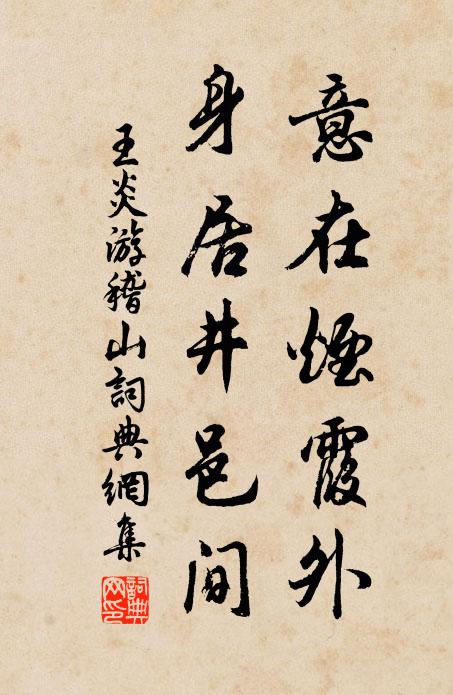 意在煙霞外
身居井邑间
王炎游稽山詞典網集
詞典網印